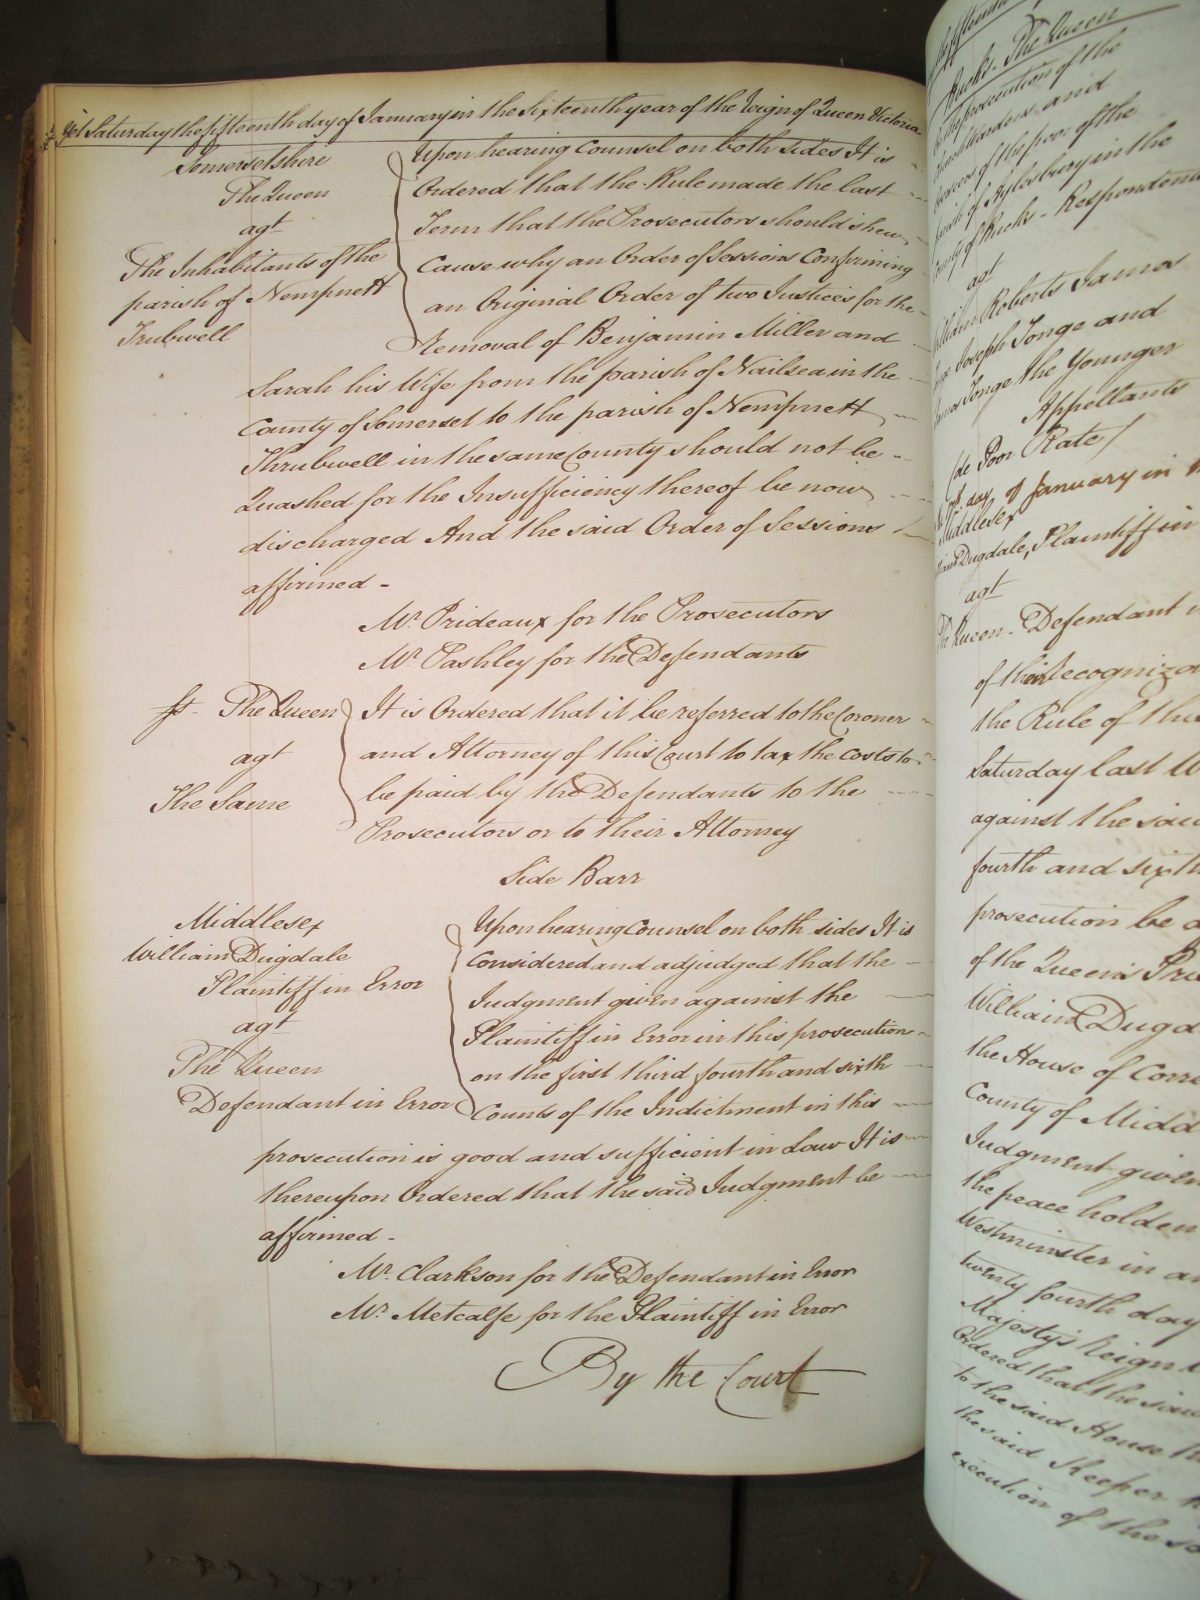 Yet Saturday the fifteenth day of January in the Sixteenth year of the Reign of Queen Victoria
Somersetshire
The Queen
agt
The Inhabitants of the
parish of Nempnett
Trubwell
Upon hearing Counsel on both sides It is
Ordered that the Rule made the last
Term that the Prosecutors should shew
Cause why an Order of Sessions Confirming
an Original Order of two Justices for the
Removal of Benjamin Miller and
Sarah his Wife from the parish of Nailsea in the
County of Somerset to the parish of Nempnett
Thrubwell in the same County should not be
Quashed for the Insufficiency thereof be now
discharged And the said Order of Sessions
affirmed -
Mr. Prideaux for the Prosecutors
Mr. Pashley for the Defendants
The Queen
agt
The Same
It is Ordered that it be referred to the Coroner
and Attorney of this Court to tax the costs to
be paid by the Defendants to the
Prosecutors or to their Attorney
Side Barr
Middlesex
William Dugdale
Plaintiff in Error
agt
The Queen
Defendant in Error
Upon hearing Counsel on both sides It is
Considered and adjudged that the
Judgment given against the
Plaintiff in Error in this prosecution
on the first third fourth and sixth
Counts of the Indictment in this
prosecution is good and sufficient in Law It is
thereupon Ordered that the said Judgment be
affirmed -
Mr. Clarkson for the Defendant in Error
Mr. Metcalfe for the Plaintiff in Error
By the Court
Bucks - The Queen
on the prosecution of the
Churchwardens and
Overseers of the poor of the
parish of Aylesbury in the
County of Bucks - Respondents
agt
William Roberts James
Joseph Tonge and
Tonge the Younger
Appellants
(de Poor Rate)
day of January in
Middlesex
Dugdale, Plaintiff in
agt
The Queen - Defendant
of their Recognizan
the Rule of this
Saturday last
against the said
fourth and sixth
prosecution be
of the Queen's
William Dugd
the House of Corre
County of Midd
Judgment given
the peace holden
Westminster in
twenty fourth day
Majesty's Reign
Ordered that the said
to the said House
the said Keeper
execution of the